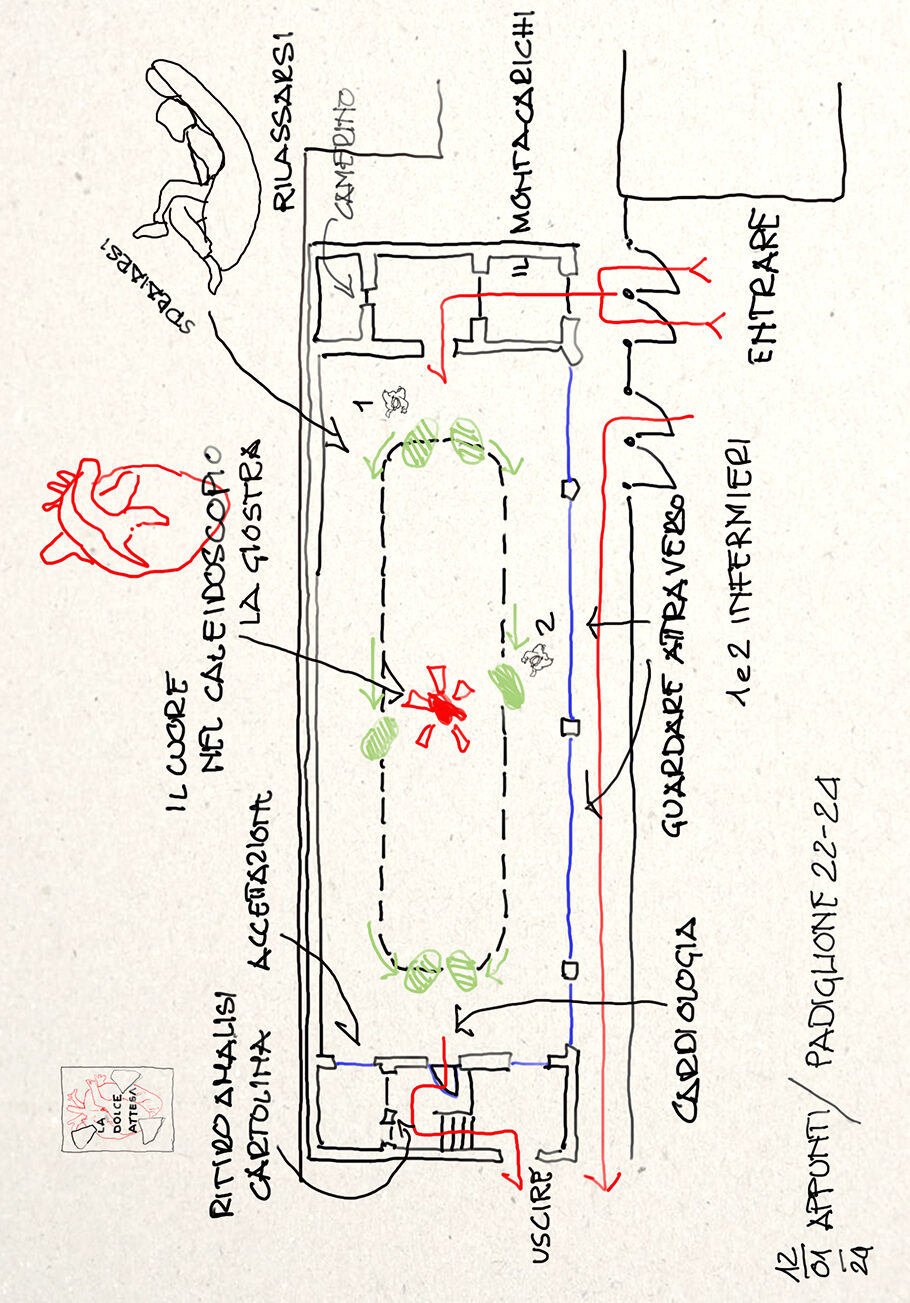 LA
DOLCE
ATTESA
SDRAIARSI
RILASSARSI
IL CUORE
NEL CALEIDOSCOPIO
LA GIOSTRA
RITIRO ANALISI
CARTOLINA
ACCETTAZIONE
CAMERINO
1
IL MONTACARICHI
2
USCIRE
CARDIOLOGIA
GUARDARE ATTRAVERSO
1 e 2 INFERMIERI
ENTRARE
12
01
24
APPUNTI / PADIGLIONE 22-24